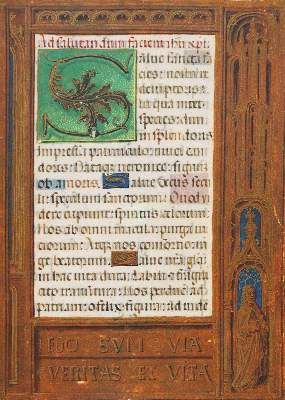 Ad salutandum faciem ihu xpi.
Salue sancta fa
cies nostri re
demptoris
in qua nitet
species diui
ni splendoris
Impressa panniculo niuei can
doris Dataque veronice signu
ob amoris Salue decus secu
li speculum sanctorum Quod vi
dere cupiunt spiritus celorum
Nos ab omni macula purga vi
ciorum Atque nos consortio iun
ge beatorum Salue nostra gloria
in hac vita dura Labili et fragili
cito transitura Nos perduc ad
patriam o felix figura ad vide
EGO SVM VIA
VERITAS ET VITA